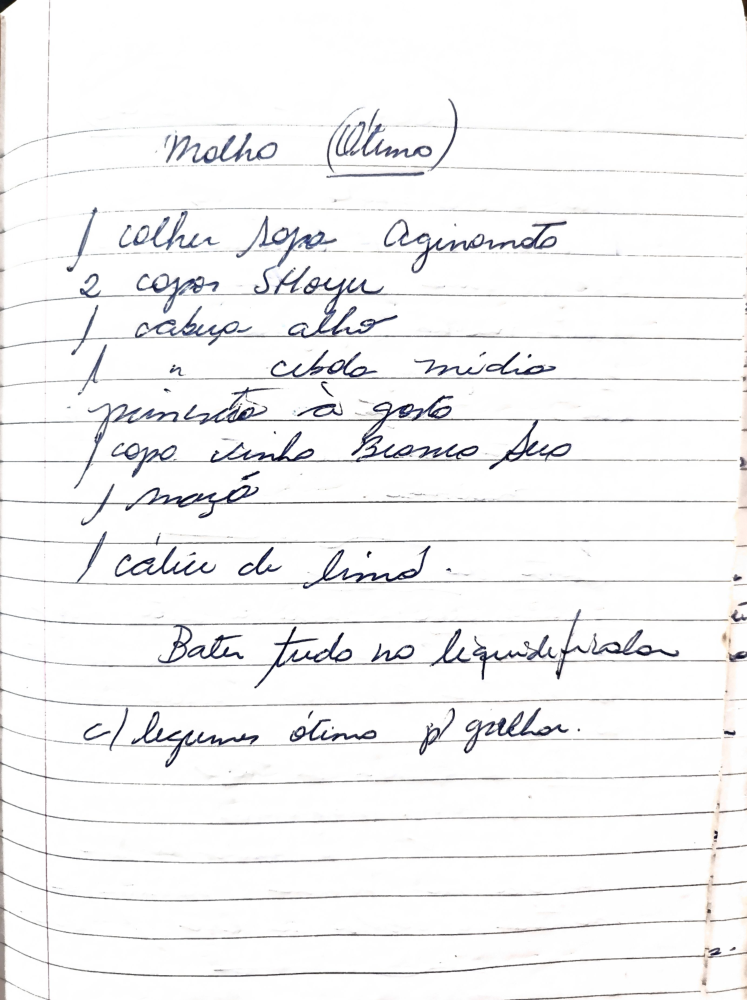 Molho (Ótimo)
1 colher sopa Aginomoto
2 copos SHoyu
1 cabeça alho
1 " cebola média
pimenta à gosto
1 copo vinho Branco Seco
1 maçã
1 cálice de limão.
Bater tudo no liquidificador
c/ legumes ótimo p/ grelhar.